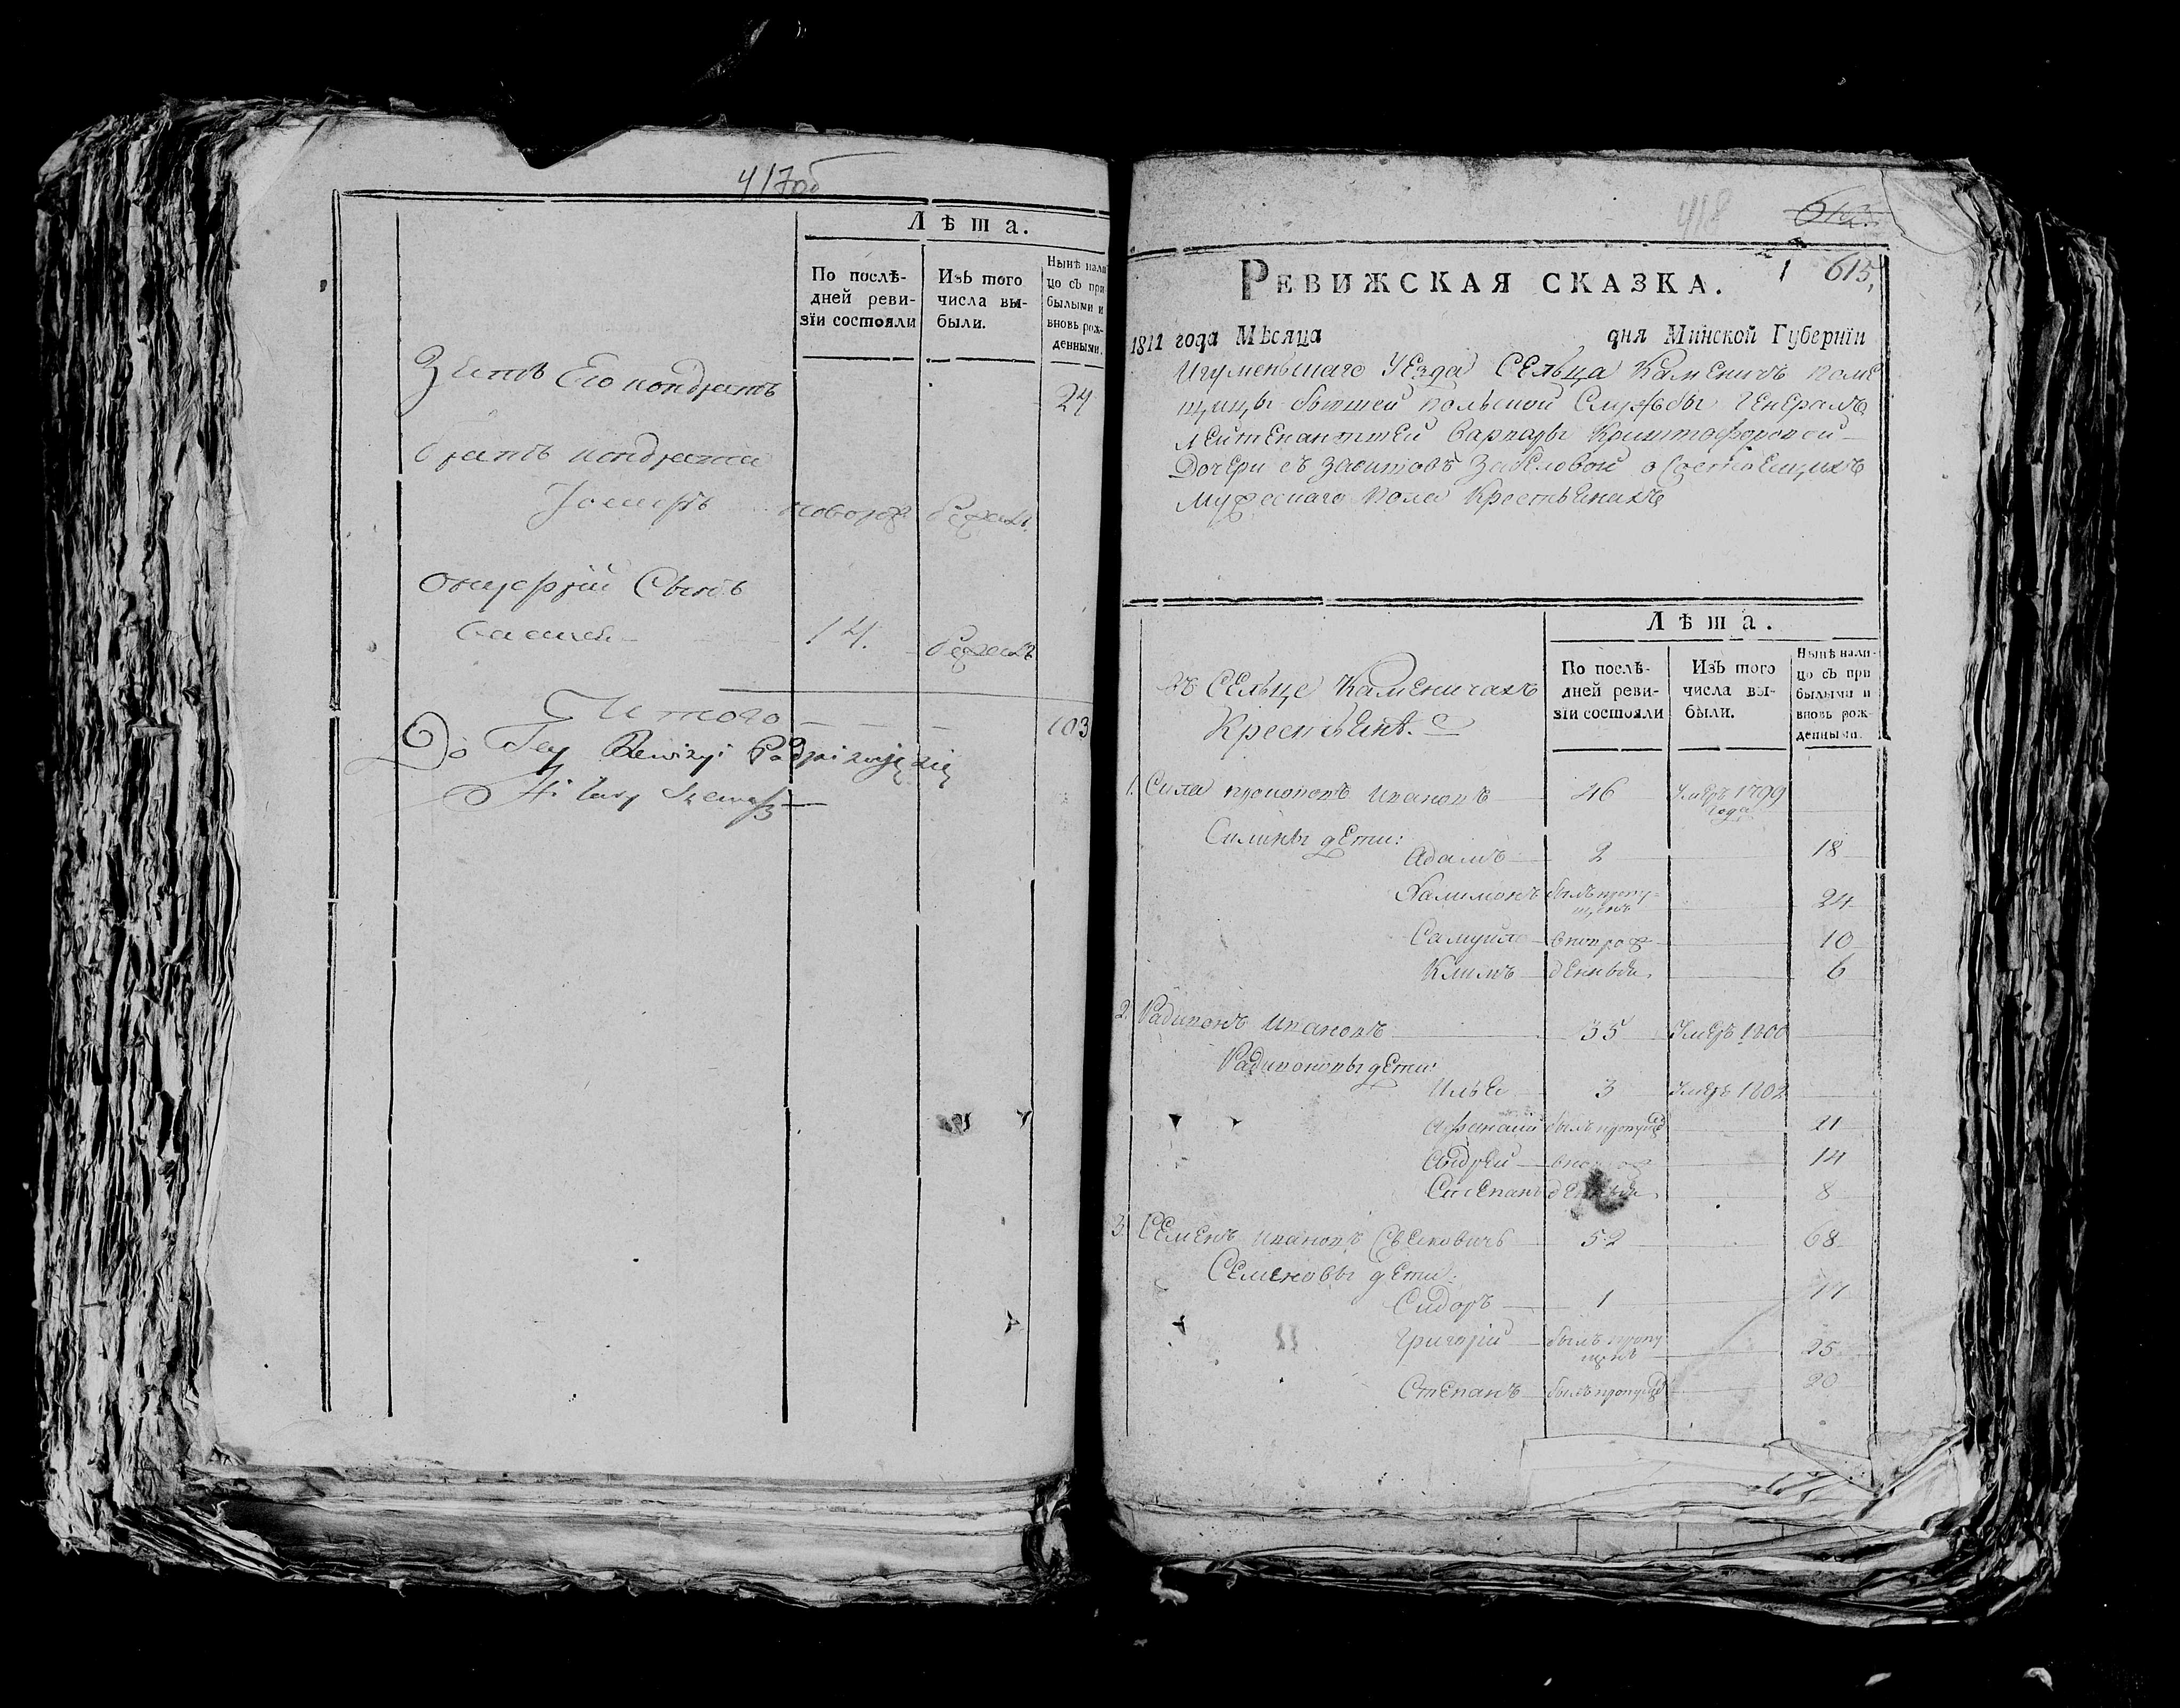 417об
Лѣта.
По послѣ-
дней реви-
зіи состояли
Изъ того
числа вы-
были.
Нынѣ нали
цо съ при
былыми и
вновь рож-
денными.
Зять Его кондратъ 24
братъ кондрата
новорож бежал.
Онуфрій
14. бежалъ
Итого 103
Do Tey Rewizyi Podpisuię się
Hilary
418
615
Ревижская сказка. 1
1811 года Мѣсяца дня Минской Губерніи
Игуменьскаго Уезда Сельца Каменичь поме
щицы бывшей польской Службы Генералъ
лейтенантшей Варвары Криштофоровой
Дочери съ Завишовъ о Состоящихъ
мужескаго пола Крестьянахъ
Лѣта.
По послѣ-
дней реви-
зіи состояли
Изъ того
числа вы-
были.
Нынѣ нали-
цо съ при
былыми и
вновь рож-
денными.
Въ Сельце Каменичахъ
Крестьянъ.
1. Сила Ивановъ 46 Умеръ 1799
года
Силины дети:
Адамъ 2 18
Халимонъ былъ пропу-
щенъ 24
Самуйло вновь рож 10
Климъ денныи. 6
2. Радивонъ Ивановъ 35 Умеръ 1800
Радивоновы дети:
Илья 3 Умеръ 1802
Афанасий былъ пропущ 21
Андрей 14
Степанъ 8
3. Семенъ Ивановъ 52 68
Семеновы дети:
Сидоръ 1 17
Григорій былъ пропу
щенъ 25
Степанъ былъ пропущ 20